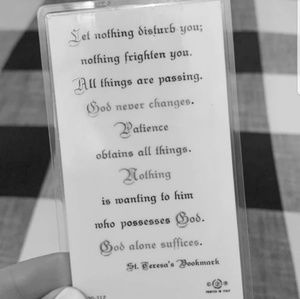 Let nothing disturb you;
nothing frighten you.
All things are passing.
God never changes.
Patience
obtains all things.
Nothing
is wanting to him
who possesses God.
God alone suffices.
St. Teresa's Bookmark
PRINTED IN ITALY